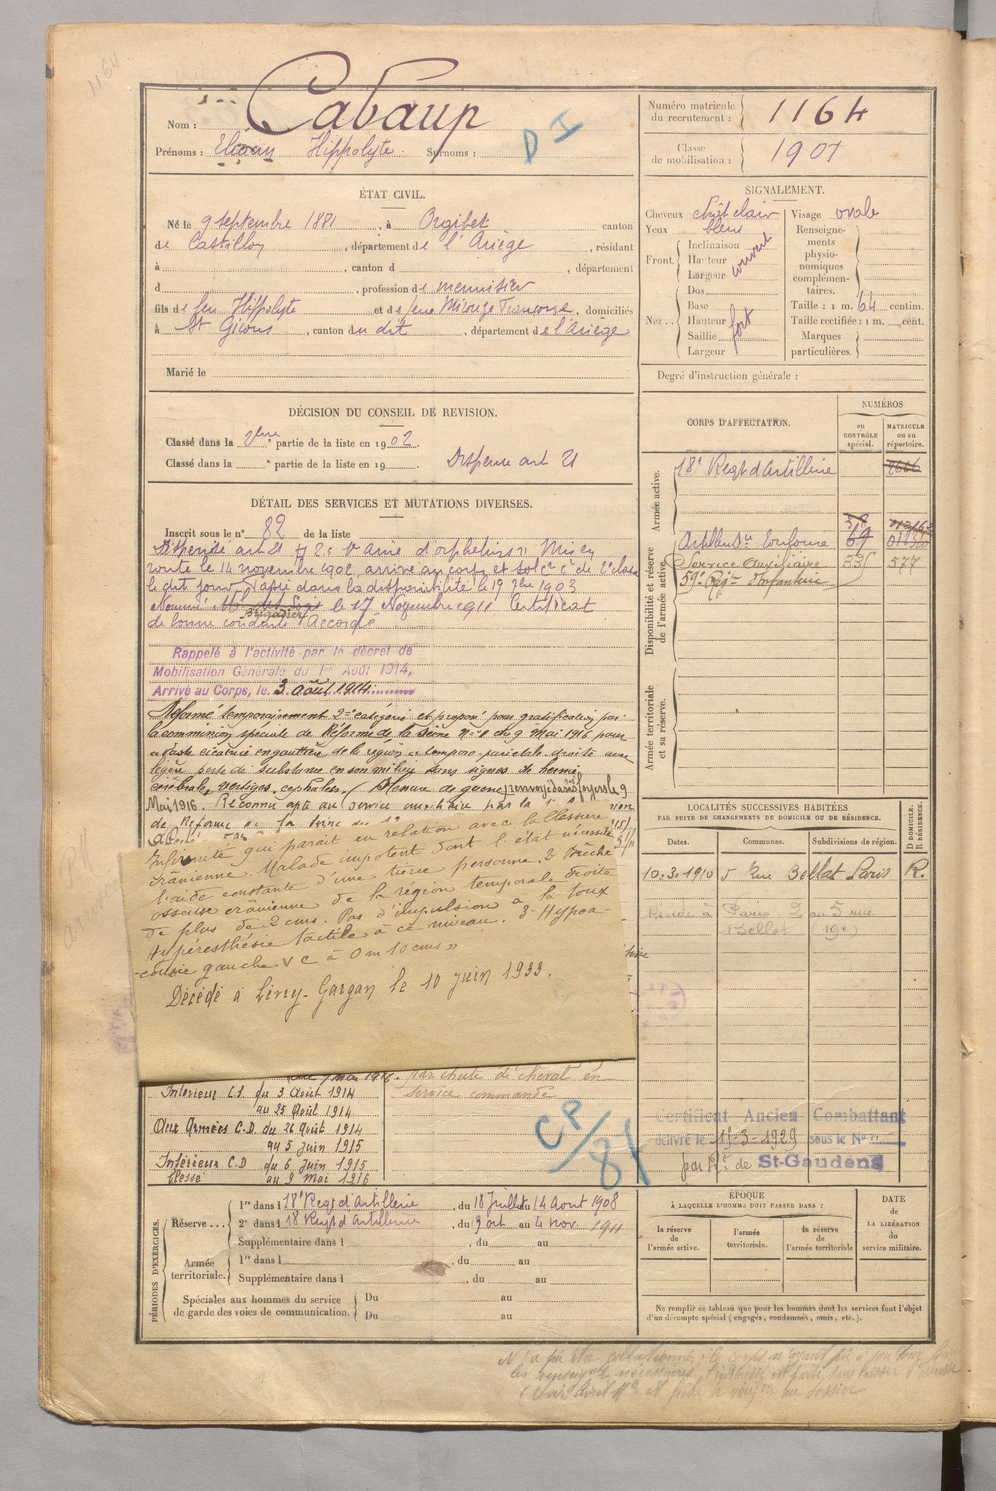 1164
Nom : Cabaup
Prénoms : Hippolyte. Surnoms :
D I
Numéro matricule du recrutement : 1164
Classe de mobilisation : 1901
ÉTAT CIVIL.
Né le 9 septembre 1881, à Orgibet, canton
de Castillon, département de l'Ariège, résidant
à , canton d , département
d , profession de menuisier
fils de feu Hippolyte et de feue Mirouze Françoise, domiciliés
à St Girons, canton du dit, département de l'Ariège
Marié le
SIGNALEMENT.
Cheveux chât clair Visage ovale
Yeux bleus
Front. Inclinaison Hauteur Largeur couvert
Renseignements physionomiques complémentaires.
Nez .. Dos Base Hauteur Saillie Largeur fort
Taille : 1 m. 64 centim.
Taille rectifiée : 1 m. cent.
Marques particulières.
Degré d'instruction générale :
DÉCISION DU CONSEIL DE REVISION.
Classé dans la 2ème partie de la liste en 1902.
Classé dans la e partie de la liste en 19 . Dispense art 21
DÉTAIL DES SERVICES ET MUTATIONS DIVERSES.
Inscrit sous le n° 82 de la liste
Dispensé art 21 " aîné d'orphelins " Mis en
route le 14 novembre 1902, arrivé au corps et sol. c. de 2e classe
le dit jour. Passé dans la disponibilité le 19 7bre 1903
Nommé Brigadier le 17 Novembre 1911 Certificat
de bonne conduite Accordé
Rappelé à l'activité par le décret de
Mobilisation Générale du 1er Août 1914,
Arrivé au Corps, le 3 août 1914
Réformé temporairement 2e catégorie et proposé pour gratification par
la commission spéciale de Réforme de la Seine n° 1 du 9 Mai 1916 pour
vaste cicatrice en gouttière de la région temporo-parietale droite avec
légère perte de substance en son milieu sans signes de hernie
cérébrale, vertiges, cephalées. (Blessure de guerre) renvoyé dans ses foyers le 9
Mai 1916. Reconnu apte au service auxiliaire par la
de Réforme de la Seine du
Infirmité qui parait en relation avec la blessure
crânienne. Malade impotent dont l'état nécessite
l'aide constante d'une tierce personne. 2 Brêche
osseuse crânienne de la région temporale droite
de plus de 2 cms. Pas d'impulsion à la toux
Hypéresthésie tactile à ce niveau. 3- Hypoa-
-cousie gauche V C à 0 m 10 cms »
Décédé à Livry-Gargan le 10 juin 1933.
par chute de cheval en
service commandé
Intérieur C.S. du 3 Août 1914
au 25 Août 1914
Aux Armées C.D. du 26 Août 1914
au 5 Juin 1915
Intérieur C.D du 6 Juin 1915
blessé au 9 Mai 1916
CP/84
CORPS D'AFFECTATION.
NUMÉROS
au CONTRÔLE spécial.
MATRICULE ou au répertoire.
Armée active.
18e Regt d'Artillerie
Disponibilité et réserve de l'armée active.
Artillerie Toulouse 69
Service Auxiliaire 335 577
59e Régt d'Infanterie
Armée territoriale et sa réserve.
LOCALITÉS SUCCESSIVES HABITÉES
PAR SUITE DE CHANGEMENTS DE DOMICILE OU DE RÉSIDENCE.
Dates. Communes. Subdivisions de région. D DOMICILE. R RÉSIDENCE.
10.3.1910 5 Rue Bellot Paris R.
Réside à Paris au 5 rue
Bellot (19e)
Certificat Ancien Combattant
délivré le 15-3-1929 sous le N°
par de St-Gaudens
PÉRIODES D'EXERCICES.
Réserve ... 1re dans l 18e Regt d'Artillerie, du 18 Juillet au 14 Aout 1908
2e dans l 18 Regt d'Artillerie, du 9 oct au 4 nov. 1911
Supplémentaire dans l , du au
Armée territoriale. 1re dans l , du au
Supplémentaire dans l , du au
Spéciales aux hommes du service de garde des voies de communication. Du au
Du au
ÉPOQUE
À LAQUELLE L'HOMME DOIT PASSER DANS :
la réserve de l'armée active. l'armée territoriale. la réserve de l'armée territoriale
DATE de LA LIBÉRATION du service militaire.
Ne remplir ce tableau que pour les hommes dont les services font l'objet
d'un décompte spécial (engagés, condamnés, omis, etc.).